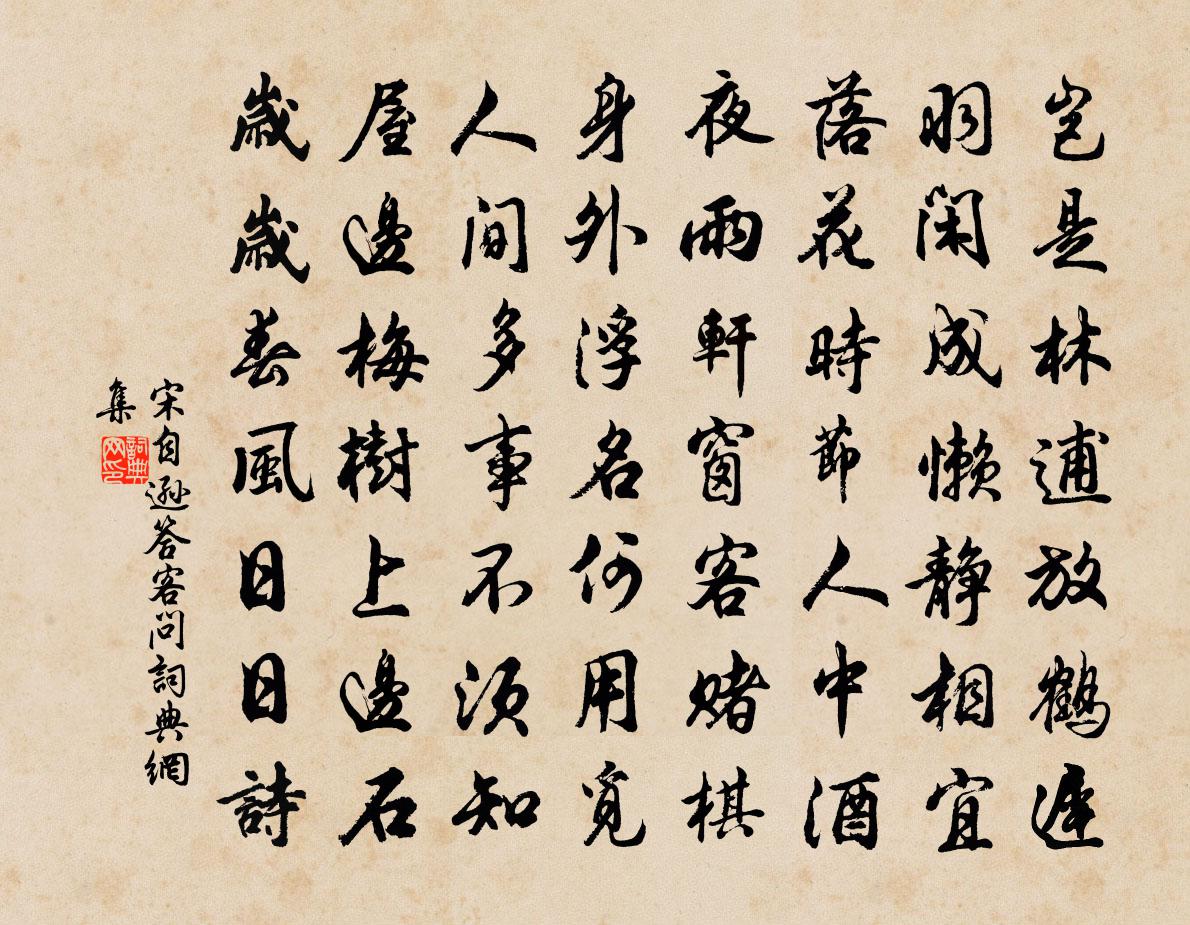 岂是林逋放鶴遲
習閑成懶靜相宜
落花時節人中酒
夜雨軒窗客賭棋
身外浮名何用覓
人間多事不須知
屋邊梅樹上邊石
歲歲春風日日詩
宋自遜答客問詞典網
集
詞典
网印